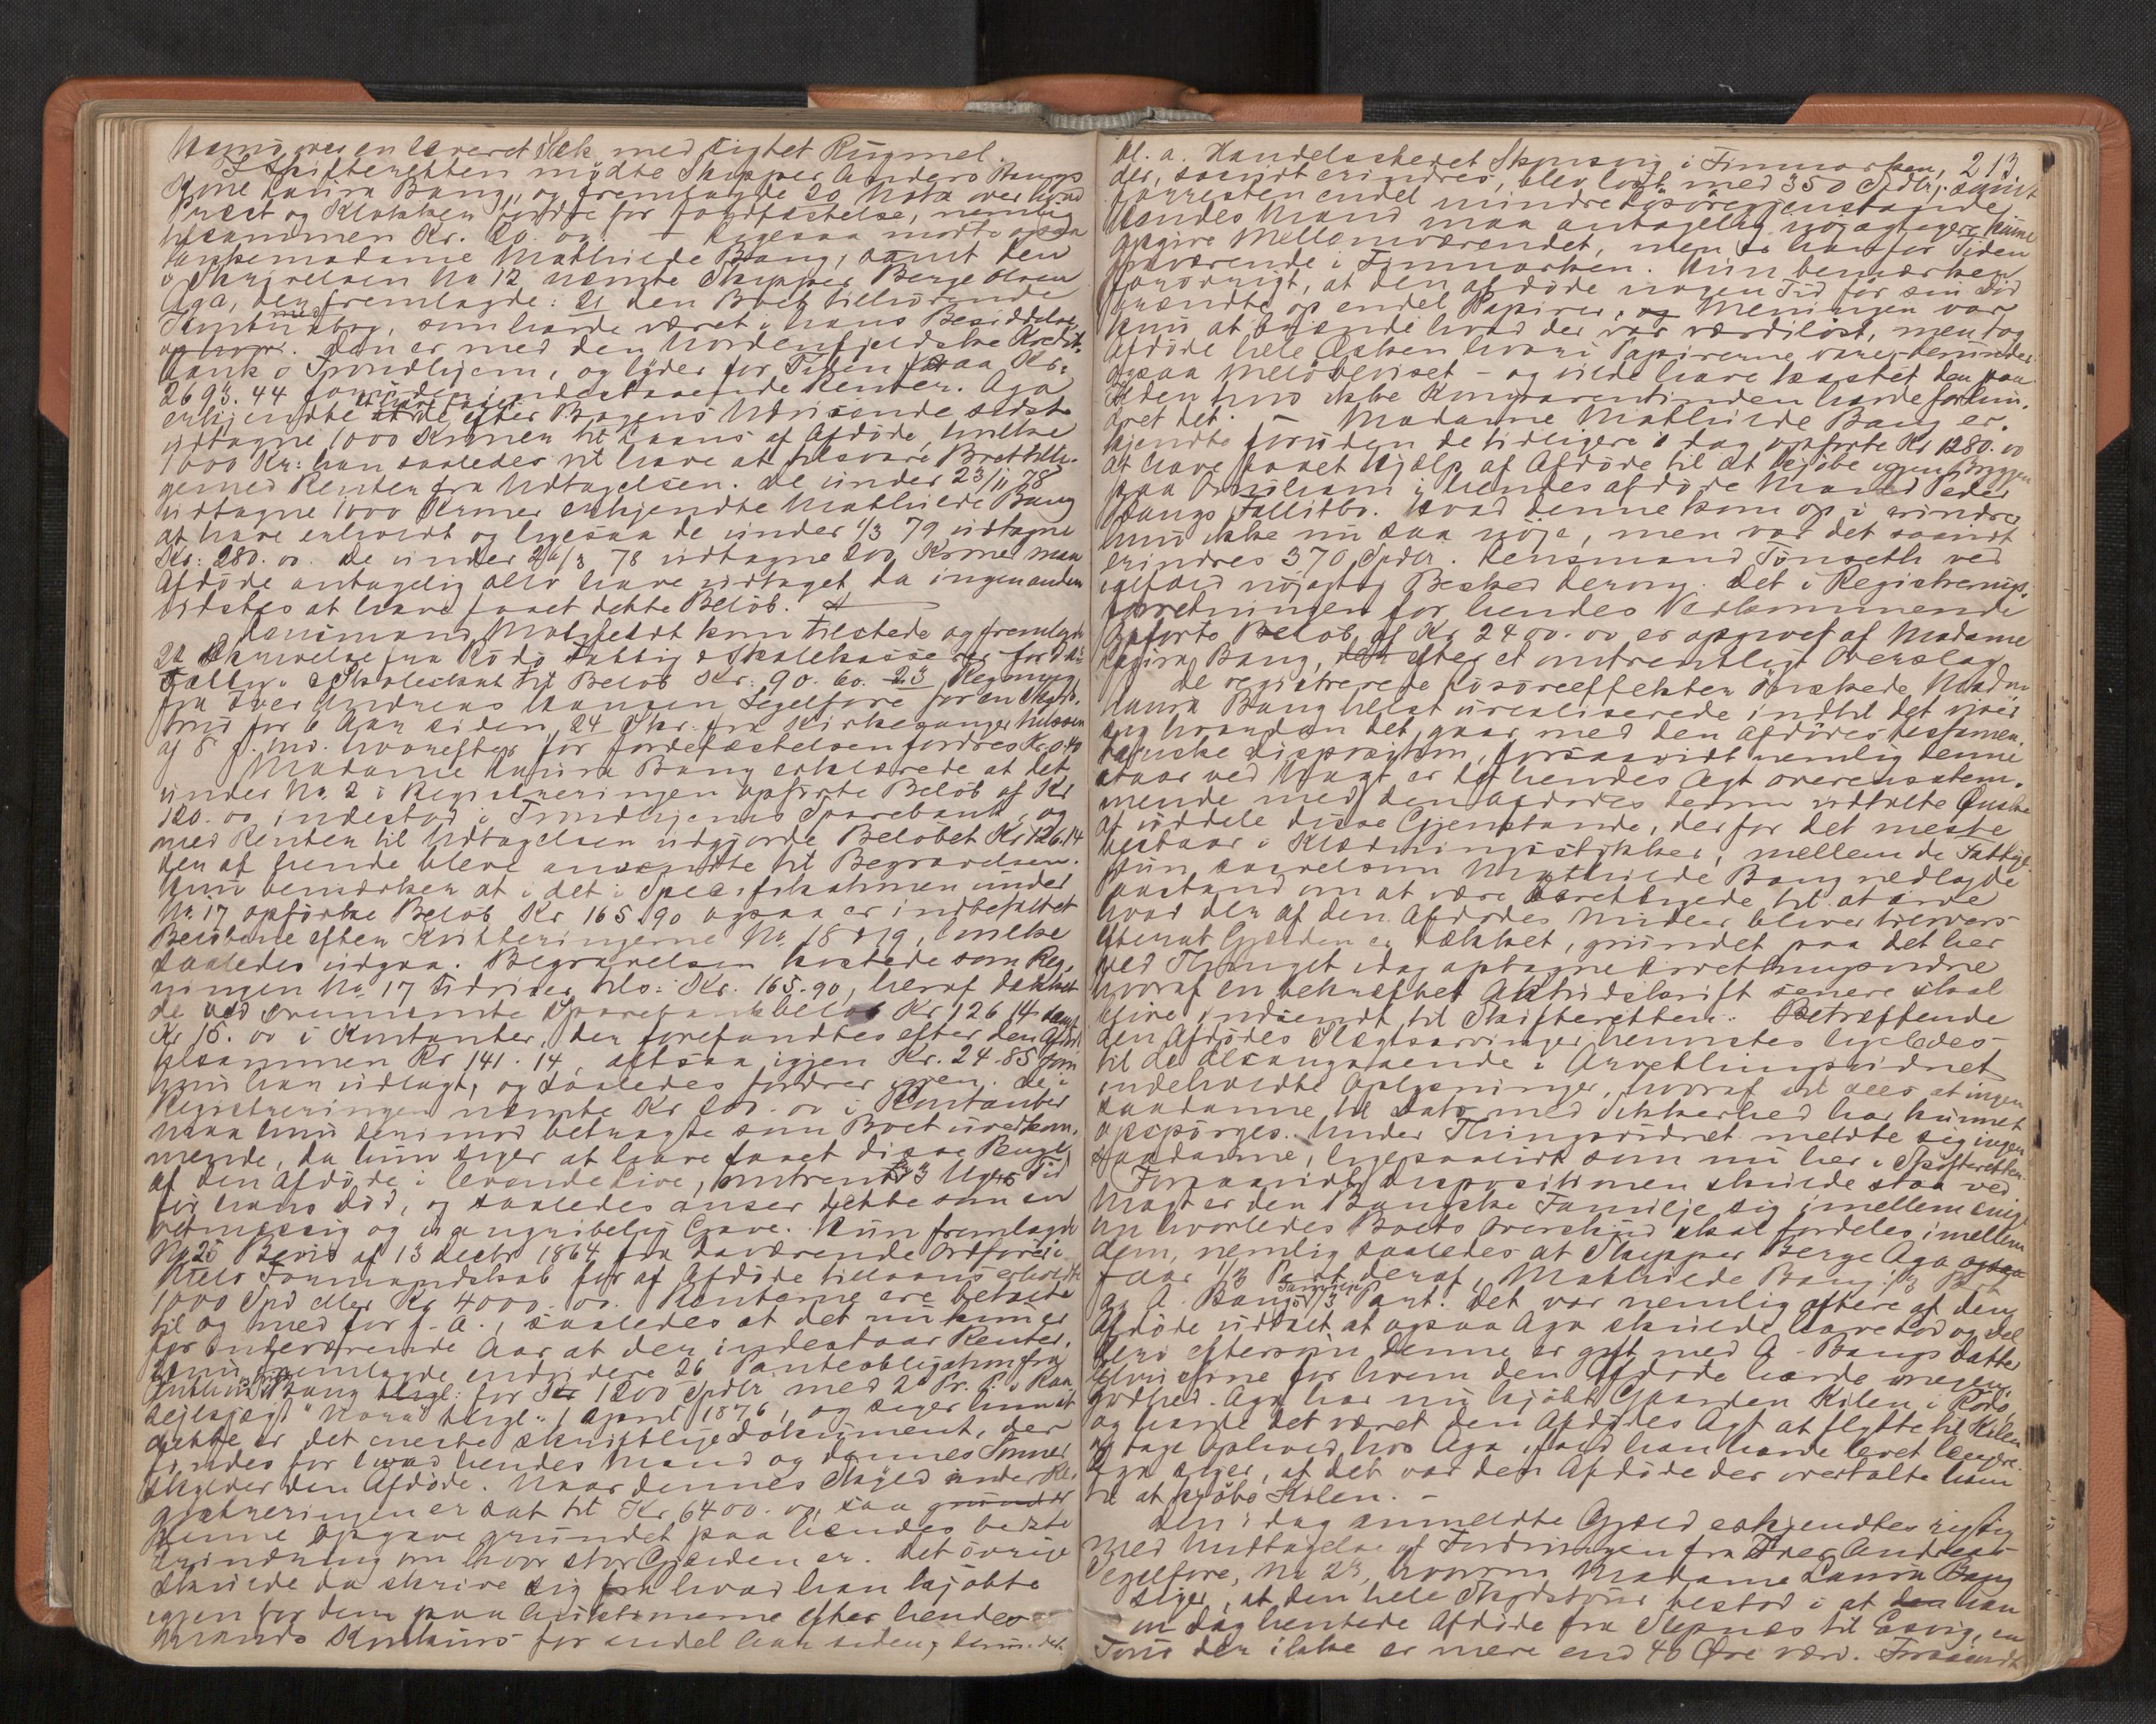 Hamis var en læreret Sæk med sigtet Rugmel.
I Skifteretten mødte Skipper Anders Bangs
Kone Laura Bang, og fremlagde 20 Nota over hvad
Præst og Klokker fordre for Jordfæstelse, nemlig
tilsammen Kr. 20.00. – Ligesaa mødte ogsaa
Enkemadame Mathilde Bang, samt den
i Skrivelsen No 12 nævnte Skipper Berge Olsen
Aga, der fremlagde: 21 den Boet tilhørende
som havde været i hans Besiddelse
Den er med den Nordenfjeldske Kredit-
bank i Trondhjem, og lyder for Tiden paa Kr.
2693.44 foruden indestaaende Renter. Aga
erkjendte at have efter Bogens Udvisende sidst
udtagne 1000 Kroner til Laans af Afdøde, hvilke
1000 Kr: han saaledes vil have at tilsvare Boet tilli-
gemed Renter fra Udtagelsen. De under 23/11 78
udtagne 1000 Kroner erkjendte Mathilde Bang
at have erholdt og ligesaa de under 1/3 79 udtagne
Kr: 280.00. De under 20/3 78 udtagne 200 Kroner maa
Afdøde antagelig selv have udtaget da ingen anden
vidstes at have faaet dette Beløb.
Lensmand kom tilstede og fremlagde
22 Skrivelse fra Rødø Fattig & Skolekasserer for
Fattig- & Skoleskat til Beløb Kr: 90.60. 23 Regning
fra Iver Andreas Hansen Segelfore for en Skyds-
tour for 6 Aar siden, 24 Skr. fra Kirkesanger Nilssen
af 8 d. Md. hvorefter for Jordefæstelsen fordres Kr. 0.40
Madame Laura Bang erklærede at det
under No. 2 i Registreringen opførte Beløb af Kr
120.00 indestod i Trondhjems Sparebank, og
med Renter til Udtagelsen udgjorde Beløbet Kr 126.14
der af hende blev anvendte til Begravelsen.
Hun bemærker at i det i Specifikationen under
No. 17 opførte Beløb Kr 165.90 ogsaa er indbefattet
Beløbene efter Kvitteringerne No. 18 & 19, hvilke
saaledes udgaa. Begravelsen kostede som Reg-
ningen No 17 udviser tils: Kr. 165.90, heraf dækket
de ved ovennævnte Sparebankbeløb Kr 126.14 samt
Kr 15.00 i Kontanter, der forefandtes efter den Afdøde
tilsammen Kr 141.14, altsaa igjen Kr. 24.85 som
hun har udlagt, og saaledes fordrer igjen. De i
Registreringen nævnte Kr 200.00 i Kontanter
maa hun derimod betragte som Boet uvedkom-
mende, da hun siger at have faaet disse Penge
af den Afdøde i levende Live, omtrent 3 Ugers Tid
før hans Død, og saaledes anser dette som en
retmæssig og uangribelig Gave. Hun fremlagde
No 25 Bevis af 13 Decbr 1864 fra daværende Ordfører i
Formandskab for af Afdøde tillaans erholdt
1000 Spd eller Kr 4000.00. Renterne ere betalte
til og med for f. A., saaledes at det nu kun er
for indeværende Aar at der indestaar Renter.
Hun fremlagde endvidere 26 Panteobligation fra
Bang for 1200 Spdlr med 2 Pr. P. i
1 April 1876, og siger hun at
dette er det eneste skriftlige Dokument, der
findes for hvad hendes Mand og dennes Sønner
skylder den Afdøde. Naar dennes Skyld under Re-
gistreringen er sat til Kr 6400.00, saa
denne Opgave grundet paa hendes bedste
Erindring om hvor stor Gjælden er. Det øvrige
skulde da skrive sig fra hvad han kjøbte
igjen for dem paa Auktionerne efter hendes
Mands Konkurs for endel Aar siden, derunder
213
bl. a. Handelsstedet i Finmarken,
der, saavidt erindres, blev løst med 350 Spdlr, samt
forresten endel mindre Løsøregjenstande
Hendes Mand maa antagelig nøjagtigere kunne
opgive Mellemværendet, men er han for Tiden
fraværende i Finmarken. Hun bemærker
forøvrigt, at den afdøde nogen Tid før sin Død
brændte op endel Papirer, Meningen var
kun at brænde hvad der var værdiløst, men tog
Afdøde hele Æsken hvori Papirerne vare, derunder
ogsaa – og vilde have kastet den paa
Ilden hvis ikke havde forhin-
dret det. – Madame Mathilde Bang er-
kjendte foruden de tidligere i dag opførte Kr 1280.00
at have faaet Hjælp af Afdøde til at kjøbe igjen Bryggen
paa i hendes afdøde Mand Peder
Bangs Fallitbo. Hvad denne kom op i erindrer
hun ikke nu saa nøje, men var det saavidt
erindres 370 Spdlr. Lensmand Tønseth ved
nøjagtig Besked derom. Det i Registrerings-
forretningen for hendes Vedkommende
opførte Beløb af Kr. 2400.00 er opgivet af Madame
Laura Bang, efter et omtrentligt Overslag.
De registrerede Løsøreeffekter ønskede Madm
Laura Bang helst urealiserede indtil det viser
sig hvordan det gaar med den Afdødes testamen-
tariske Disposition, forsaavidt nemlig denne
staar ved Magt er det hendes Agt overensstem-
mende med den Afdødes derom udtalte Ønske
at uddele disse Gjenstande, der for det meste
bestaar i Klædningsstykker, mellem de Fattige.
Hun saavelsom Mathilde Bang nedlagde
Paastand om at være berettigede til at arve
hvad der af den Afdødes Midler bliver tilovers
efterat Gjælden er dækket, grundet paa det her
ved Thinget idag optagne Arvethingsvidne
hvoraf en bekræftet Aktudskrift senere skal
blive indsendt til Skifteretten. Betræffende
den Afdødes Slægtsarvinger henvistes ligeledes
til de desangaaende i Arvethingsvidnet
indeholdte Oplysninger, hvoraf vil sees at ingen
saadanne til Dato med Sikkerhed har kunnet
opspørges. Under Thingsvidnet meldte sig ingen
saadanne, ligesaalidt som nu her i Skifteretten.
Forsaavidt Dispositionen skulde staa ved
Magt er den Bangske Familje sig imellem enig
om hvorledes Boets Overskud skal fordeles imellem
dem, nemlig saaledes at Skipper Berge Aga
faar 1/3 Part deraf, Mathilde Bang 1/3 Part
og A. Bangs Familie 1/3 Part. Det var nemlig oftere af den
Afdøde udtalt at ogsaa Aga skulde have Lod og Del
deri eftersom denne er gift med A. Bangs Datter
for hvem den Afdøde havde megen
Godhed. Aga har nu kjøbt Gaarden Kilen i Rødø,
og havde det været den Afdødes Agt at flytte til Kilen
og tage Ophold hos Aga ifald han havde levet længere.
Aga siger, at det var den Afdøde der overtalte ham
til at kjøbe Kilen. –
Den i dag anmeldte Gjæld erkjendtes rigtig
med Undtagelse af Fordringen fra Iver Andreas
Segelfore, No 23, hvorom Madame Laura Bang
siger, at den hele Skydstour bestod i at han
en Dag hentede Afdøde fra Slepnæs til Esvig, en
Tour der ikke er mere end 40 Øre værd. Forsaavidt